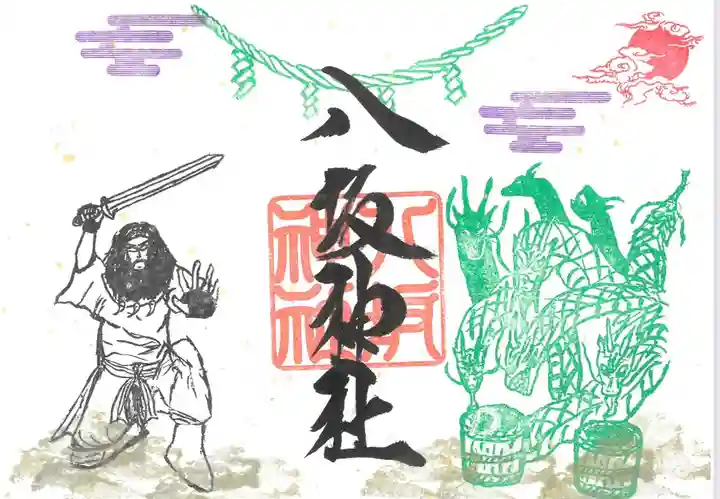 八坂神社
八坂
神社